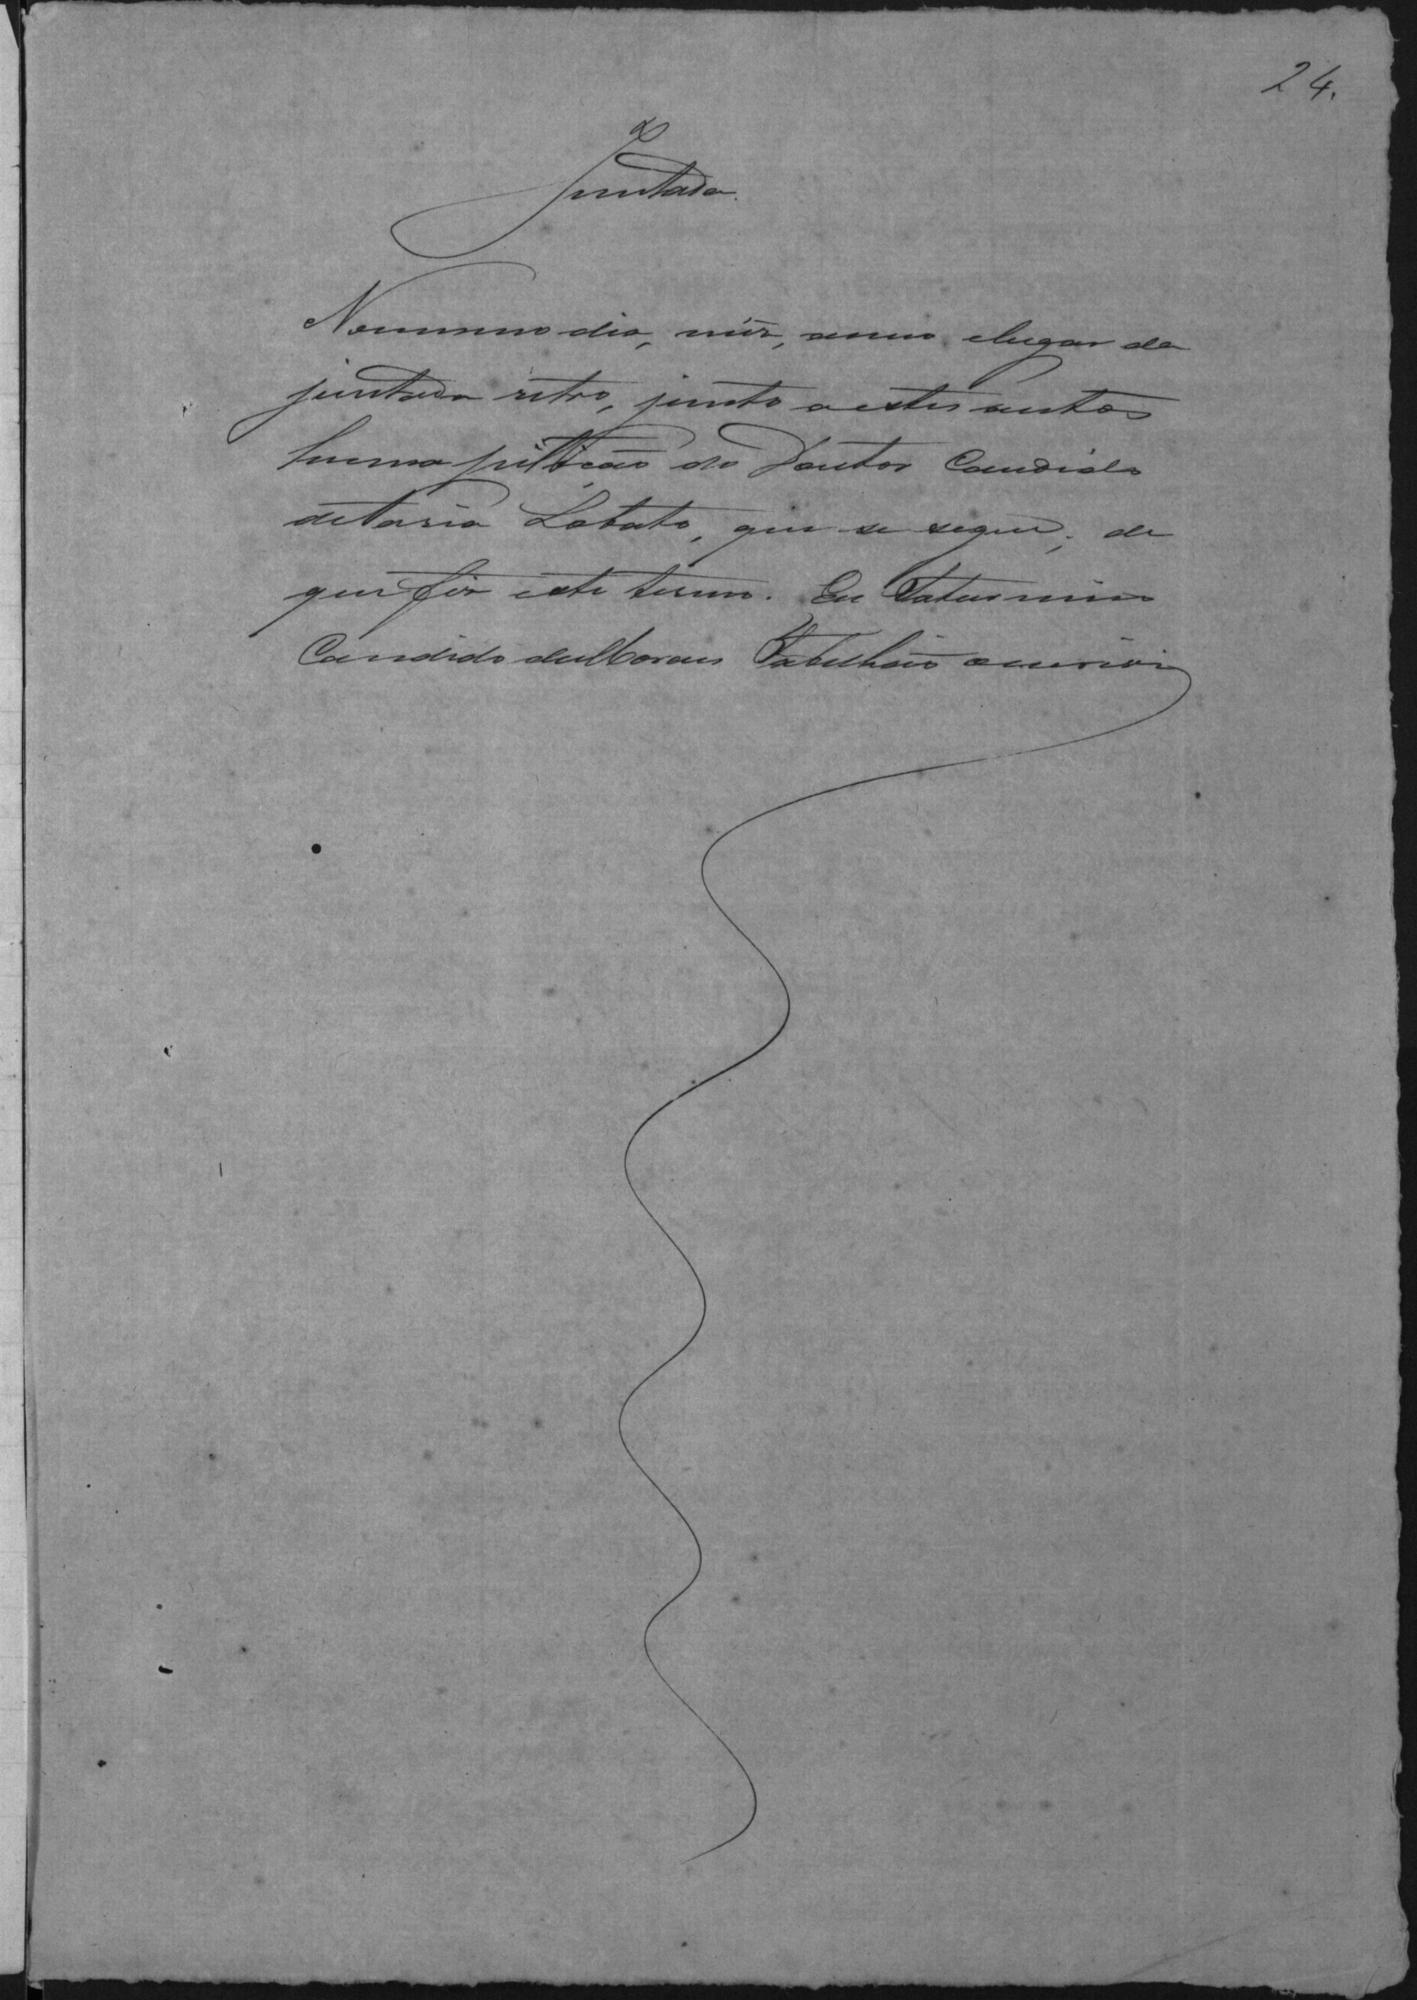 24.
Juntada.
No mesmo dia, mez, anno e lugar da
juntada retro, junto a estes autos
huma petição do Doutor Candido
de Faria Lobato, que se segue; de
que fiz este termo. Eu Saturnino
Candido de Moraes Tabellião escrevi